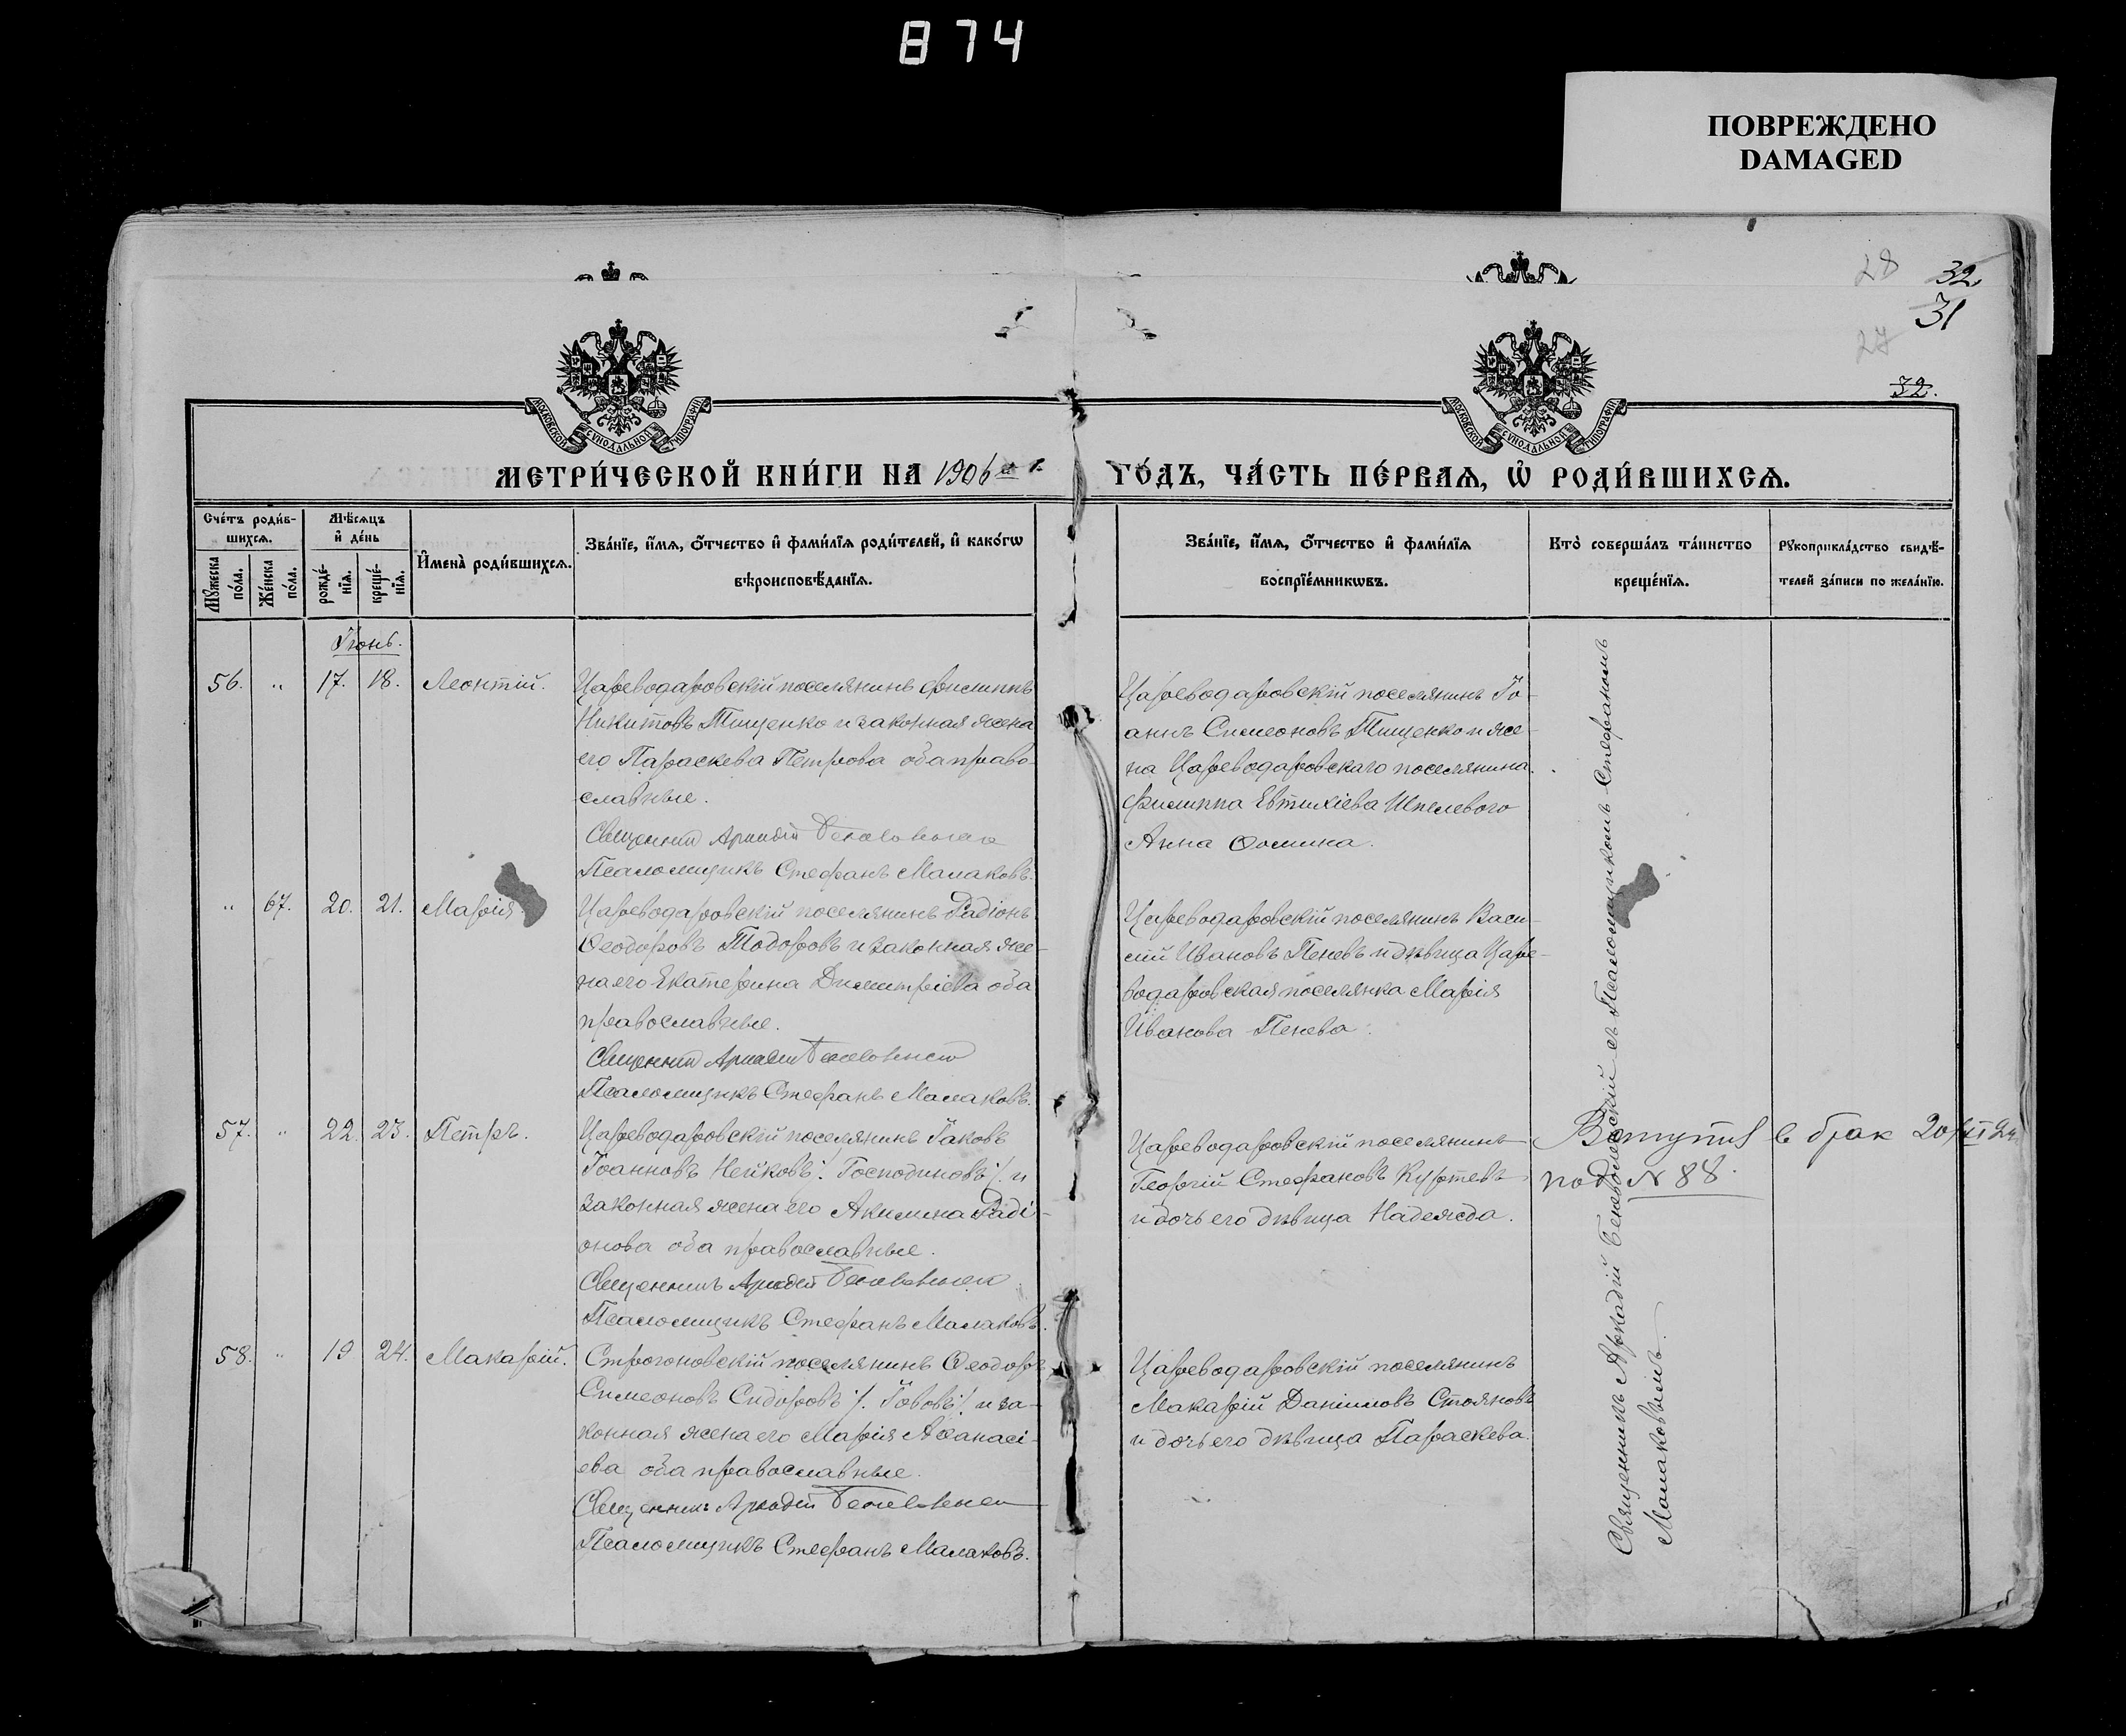 874
ПОВРЕЖДЕНО
DAMAGED
28 32.
31
27
32.
МОСКОВСКОЙ СѴНОДАЛЬНОЙ ТИПОГРАФІИ
МОСКОВСКОЙ СѴНОДАЛЬНОЙ ТИПОГРАФІИ
МЕТРИ́ЧЕСКОЙ КНИ́ГИ НА 1906 ГО́ДЪ, ЧА́СТЬ ПЕ́РВАѦ, Ѡ҆ РОДИ́ВШИХСѦ.
Сче́тъ роди́в-
шихсѧ.
Мꙋ́жеска по́ла.
Же́нска по́ла.
Мѣ́сѧцъ
и҆ де́нь
рожде́-
нїѧ.
креще́-
нїѧ.
И҆мена̀ роди́вшихсѧ.
Зва́нїе, и҆́мѧ, ѻ҆́тчество и҆ фами́лїѧ роди́телей, и҆ како́гѡ
вѣроисповѣ́данїѧ.
Зва́нїе, и҆́мѧ, ѻ҆́тчество и҆ фами́лїѧ
воспрїе́мникѡвъ.
Кто̀ соверша́лъ та́инство
креще́нїѧ.
Рꙋкоприкла́дство свидѣ́-
телей за́писи по жела́нїю.
Іюнь.
56. " 17. 18. Леонтій.
Цареводаровскій поселянинъ Филиппъ
Никитовъ Тищенко и законная жена
его Параскева Петрова оба право-
славные.
Священникъ Аркадій
Псаломщикъ Стефанъ Малаковъ.
Цареводаровскій поселянинъ Іо-
аннъ Симеоновъ Тищенко и же-
на Цареводаровскаго поселянина
Филиппа Евтихіева Шпелевого
Анна Фомина.
" 67. 20. 21. Марія
Цареводаровскій поселянинъ Радіонъ
Феодоровъ Тодоровъ и законная же-
на его Екатерина Димитріева оба
православные.
Священникъ Аркадій
Псаломщикъ Стефанъ Малаковъ.
Цареводаровскій поселянинъ Васи-
лій Ивановъ Пеневъ и дѣвица Царе-
водаровская поселянка Марія
Иванова Пенева.
57. " 22. 23. Петръ.
Цареводаровскій поселянинъ Іаковъ
Іоанновъ Нейковъ /. Господиновъ ./ и
законная жена его Акилина Ради-
онова оба православные.
Священникъ Аркадій
Псаломщикъ Стефанъ Малаковъ.
Цареводаровскій поселянинъ
Георгій Стефановъ Куртевъ
и дочь его дѣвица Надежда.
Вступил в брак 20/XI 24
под № 88.
58. " 19 24. Макарій.
Строгоновскій поселянинъ Феодоръ
Симеоновъ Сидоровъ /. Іововъ ./ и за-
конная жена его Марія Аѳанасі-
ева оба православные.
Священникъ Аркадій
Псаломщикъ Стефанъ Малаковъ.
Цареводаровскій поселянинъ
Макарій Даніиловъ Стояновъ
и дочь его дѣвица Параскева.
Священникъ Аркадій съ Псаломщикомъ Стефаномъ
Малаковымъ.